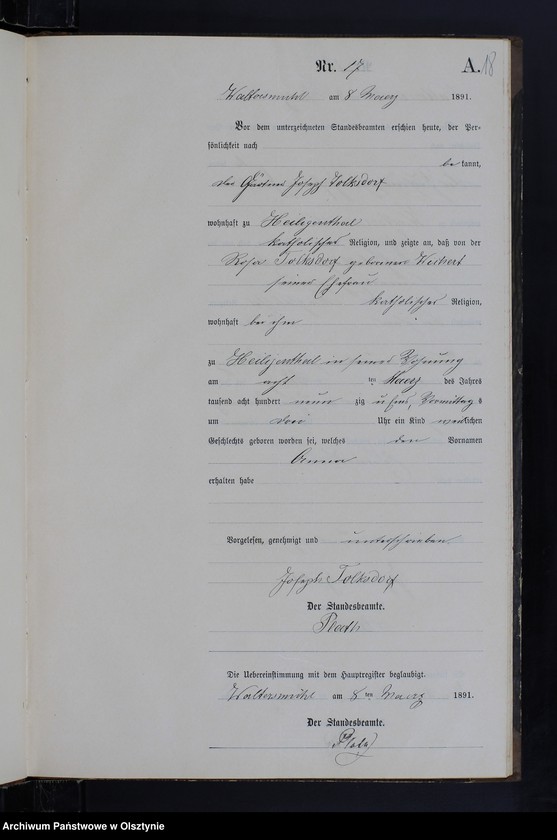 Nr. 17 A. 18
Waltersmühl am 8 Maerz 1891.
Vor dem unterzeichneten Standesbeamten erschien heute, der Per-
sönlichkeit nach
bekannt,
der Joseph Tolksdorf
wohnhaft zu Heiligenthal
katholischer Religion, und zeigte an, daß von der
Rosa Tolksdorf geborenen
seiner Ehefrau
katholischer Religion,
wohnhaft bei ihm
zu Heiligenthal in seiner Wohnung
am acht ten Maerz des Jahres
tausend acht hundert neun zig u eins, Vormittags
um drei Uhr ein Kind weiblichen
Geschlechts geboren worden sei, welches den Vornamen
Anna
erhalten habe
Vorgelesen, genehmigt und unterschrieben.
Joseph Tolksdorf
Der Standesbeamte.
Die Uebereinstimmung mit dem Hauptregister beglaubigt.
Waltersmühl am 8 ten Maerz 1891.
Der Standesbeamte.
Archiwum Państwowe w Olsztynie